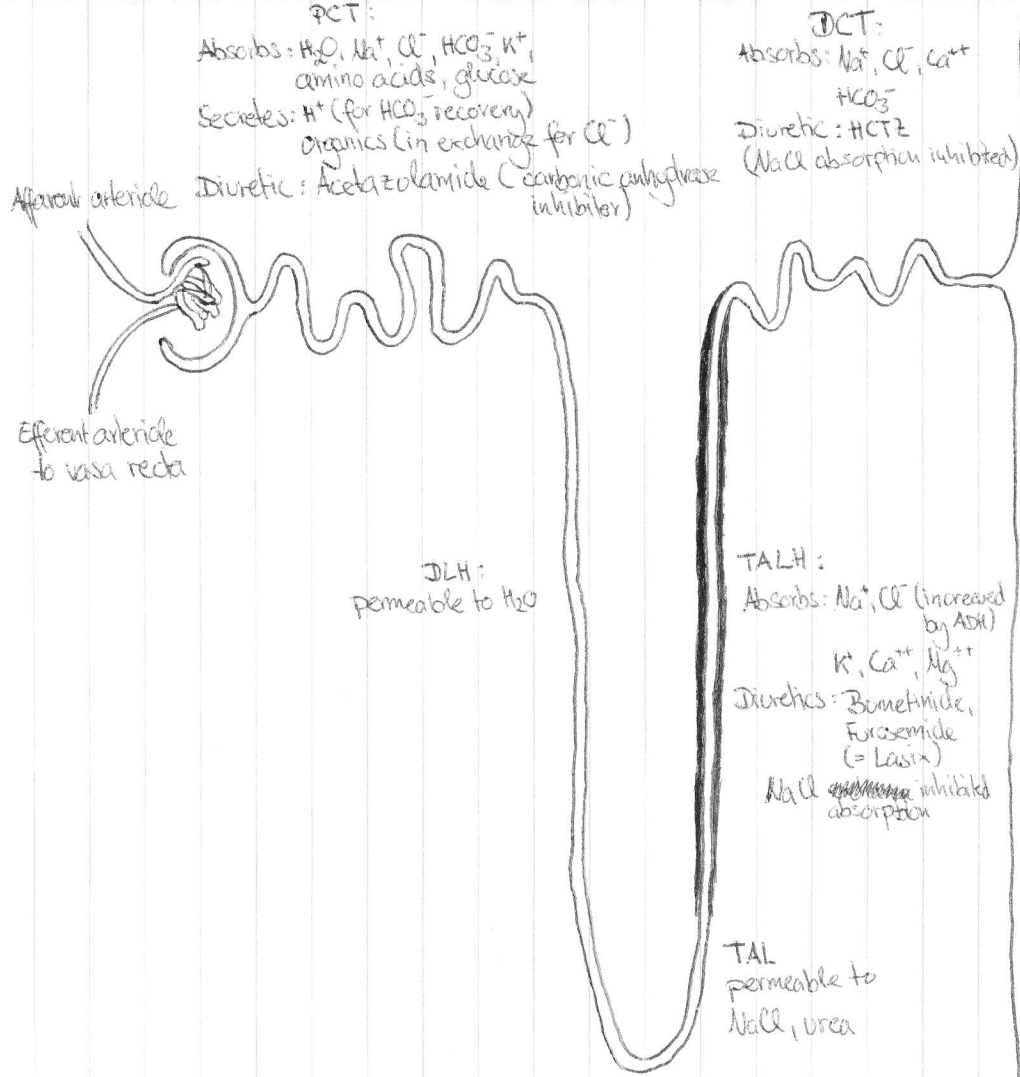 PCT:
Absorbs: H₂O, Na⁺, Cl⁻, HCO₃⁻, K⁺,
amino acids, glucose
Secretes: H⁺ (for HCO₃⁻ recovery)
organics (in exchange for Cl⁻)
Diuretic: Acetazolamide (carbonic anhydrase
inhibitor)
DCT:
Absorbs: Na⁺, Cl⁻, Ca⁺⁺
HCO₃⁻
Diuretic: HCTZ
(NaCl absorption inhibited)
Afferent arteriole
Efferent arteriole
to vasa recta
DLH:
permeable to H₂O
TALH:
Absorbs: Na⁺, Cl⁻ (increased
by ADH)
K⁺, Ca⁺⁺, Mg⁺⁺
Diuretics: Bumetinide,
Furosemide
(= Lasix)
NaCl inhibited
absorption
TAL
permeable to
NaCl, urea